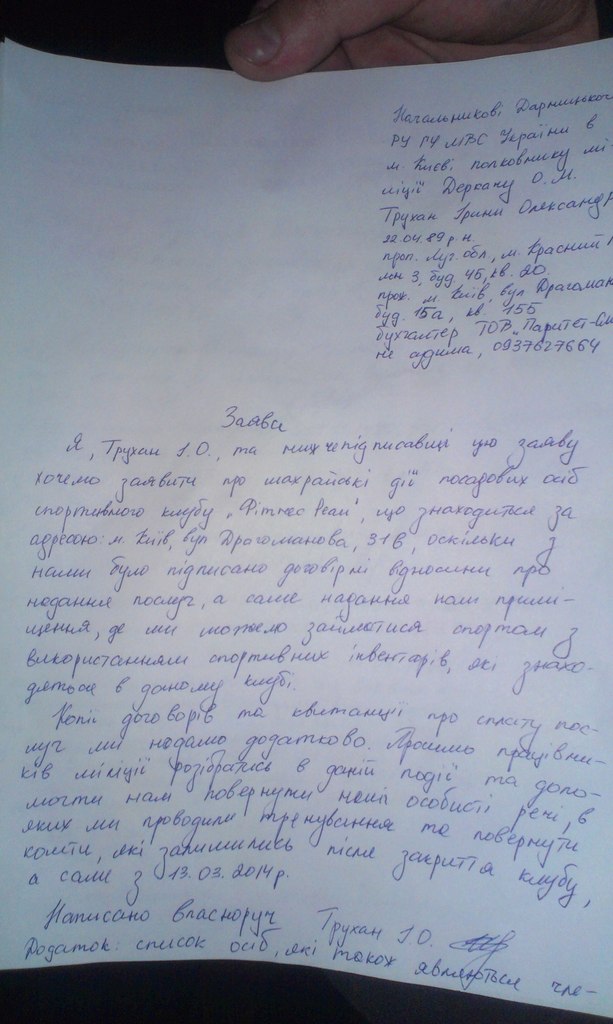 Начальникові Дарницького
РУ ГУ МВС України в
м. Києві полковнику мі-
ліції Деркачу О.М.
Трухан Ірини Олександр
22.04.89 р.н.
проп. Луг. обл., м. Красний
буд. 45, кв. 20.
прож. м. Київ, вул Драгоман
буд. 15а, кв. 155
бухгалтер ТОВ „Паритет-
не судима, 0937627664
Заява
Я, Трухан І.О., та нижчепідписавщі цю заяву
хочемо заявити про шахрайські дії посадових осіб
спортивного клубу „Фітнес Реал", що знаходиться за
адресою: м. Київ, вул Драгоманова, 31В, оскільки з
нами було підписано договірні відносини про
надання послуг, а саме надання нам примі-
щення, де ми можемо займатися спортом з
використанням спортивних інвентарів, які знахо-
дяться в даному клубі.
Копії договорів та квитанції про сплату пос-
луг ми надамо додатково. Просимо працівни-
ків міліції розібратись в даній події та допо-
могти нам повернути наші особисті речі, в
яких ми проводили тренування та повернути
кошти, які залишились після закриття клубу,
а саме з 13.03.2014р.
Написано власноруч Трухан І.О.
Додаток: список осіб, які також являються чле-